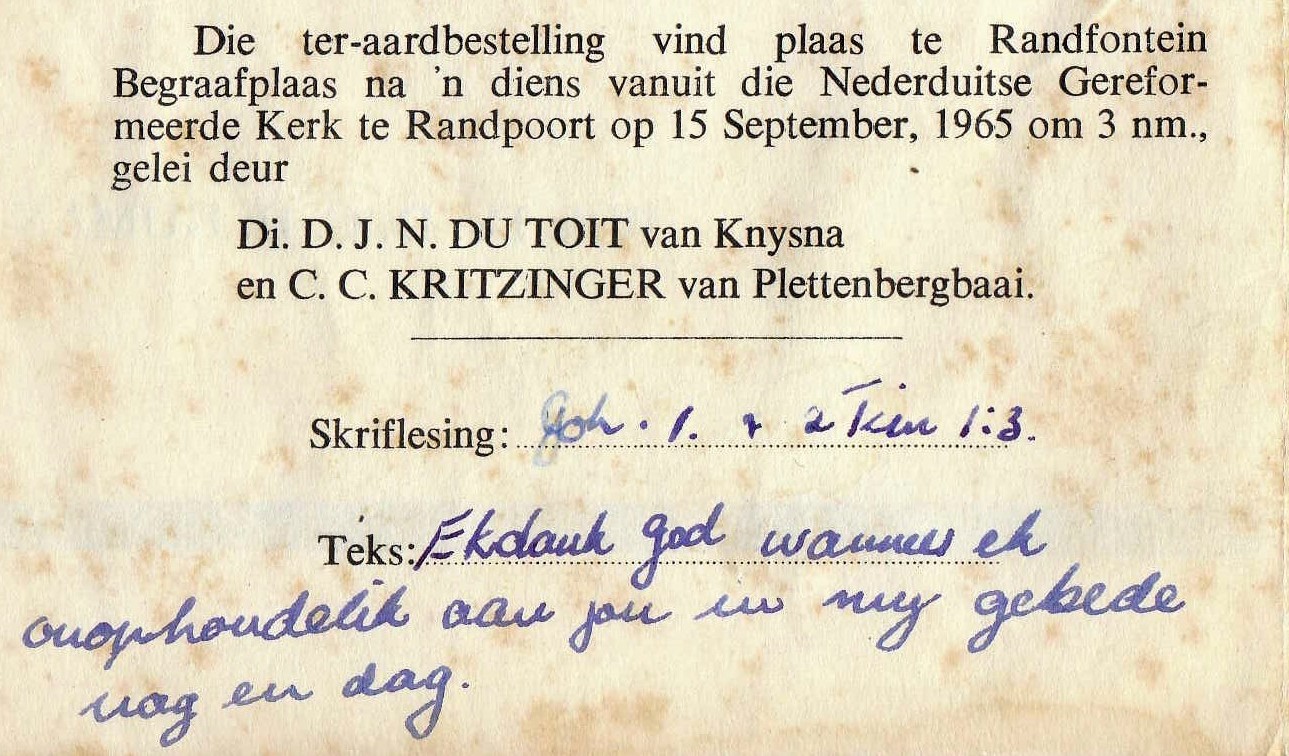 Die ter-aardbestelling vind plaas te Randfontein
Begraafplaas na 'n diens vanuit die Nederduitse Gerefor-
meerde Kerk te Randpoort op 15 September, 1965 om 3 nm.,
gelei deur
Di. D. J. N. DU TOIT van Knysna
en C. C. KRITZINGER van Plettenbergbaai.
Skriflesing: Joh. 1. + 2 Tim 1:3.
Teks: Ek dank God wanneer ek
onophoudelik aan jou in my gebede
nag en dag.